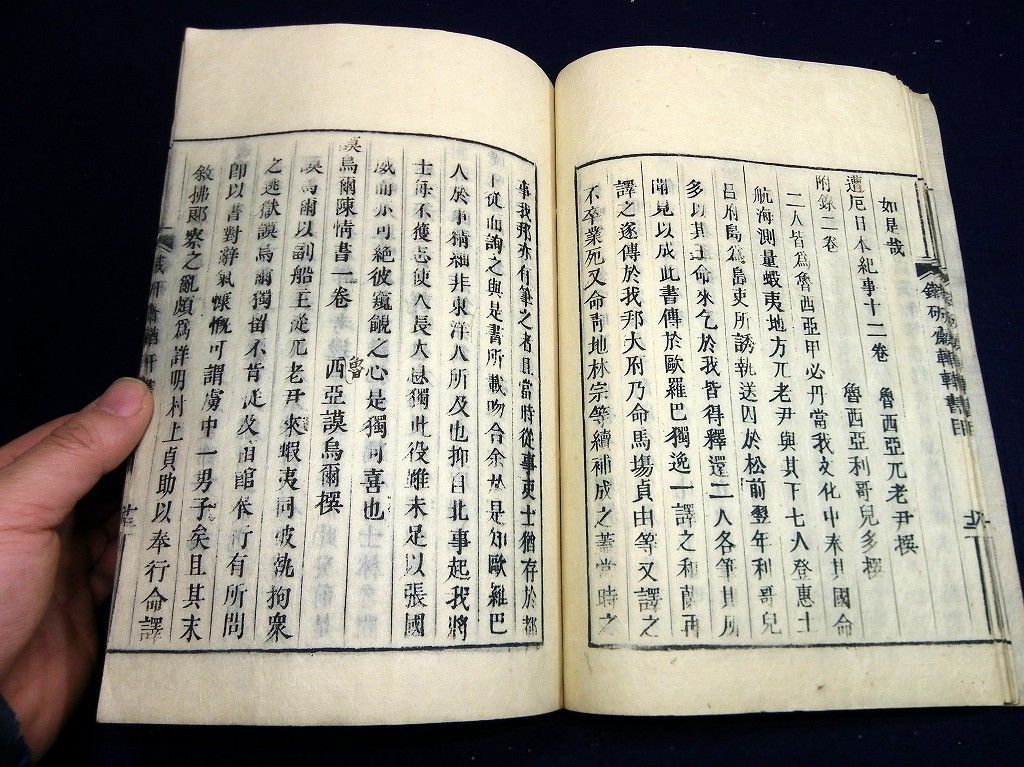 如是哉
遭厄日本紀事十二卷 魯西亞兀老尹撰
附錄二卷 魯西亞利哥兒多撰
二人皆爲魯西亞甲必丹當我文化中奉其國命
航海測量蝦夷地方兀老尹與其下七人登惠土
呂府島爲島吏所誘執送囚於松前翌年利哥兒
多以其王命來乞於我皆得釋還二人各筆其所
聞見以成此書傳於歐羅巴獨逸一譯之和蘭再
譯之遂傳於我邦大府乃命馬場貞由等又譯之
不卒業死又命靑地林宗等續補成之蓋當時之
事我邦亦有筆之者且當時從事吏士猶存於都
下從而詢之與是書所載吻合余於是知歐羅巴
人於事精細非東洋人所及也抑自北事起我將
士每不獲志使人長大息獨此役雖未足以張國
威而亦可絕彼窺覦之心是獨可喜也
模烏爾陳情書一卷 魯西亞謨烏爾撰
謨烏爾以副船主從兀老尹來蝦夷同被執拘衆
之逃獄謨烏爾獨留不肯從及自館
卽以書對辭氣慷慨可謂虜中一男子矣且其末
敍拂郎察之亂頗爲詳明村上貞助以奉行命譯